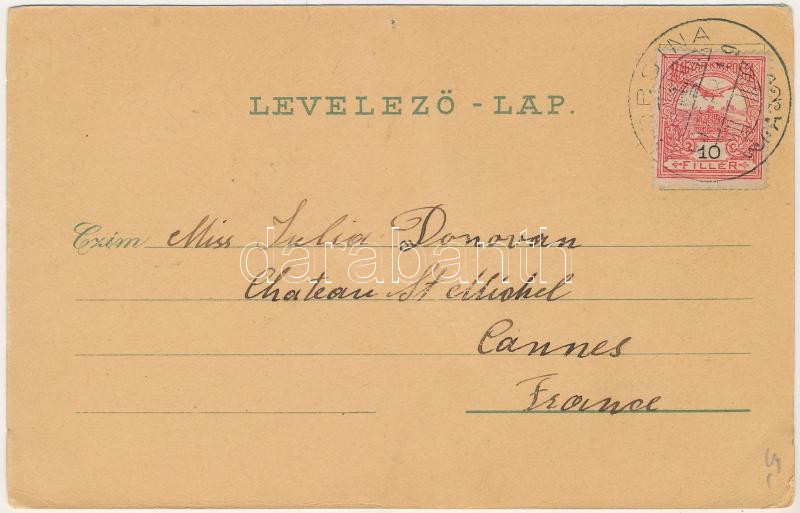 LEVELEZÖ - LAP.
MAGYAR KIR. POSTA
10
FILLÉR
Czim Miss Julia Donovan
darabanth
Chateau St Michel
Cannes
France